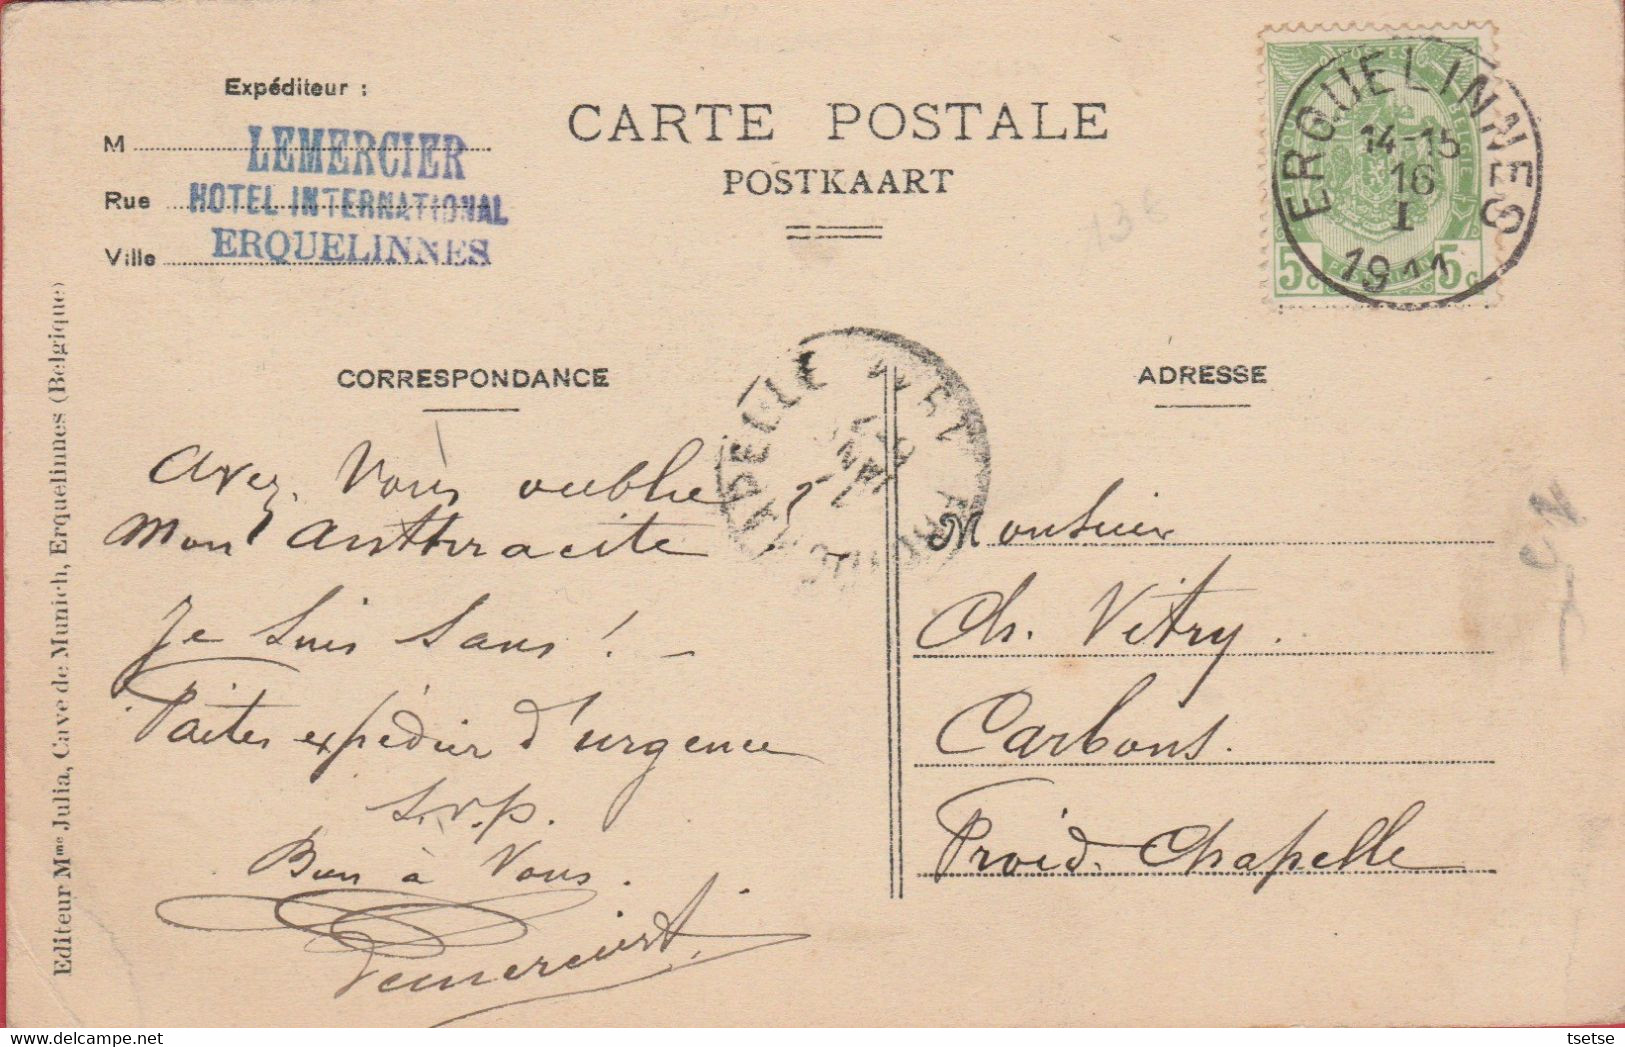 Expéditeur :
M LEMERCIER
Rue HOTEL INTERNATIONAL
Ville ERQUELINNES
CARTE POSTALE
POSTKAART
ERQUELINNES
14-15
16
I
1911
5c 5c
13€
CORRESPONDANCE
ADRESSE
Avez Vous oublié
Mon Anthracite ?
Je suis sans ! –
Faites expédier d'urgence
s.v.p.
Bien à Vous.
Lemercier
Monsieur
Ch. Vitry.
Carbons.
Froid-Chapelle
Editeur Mme Julia, Cave de Munich, Erquelinnes (Belgique)
tsetse